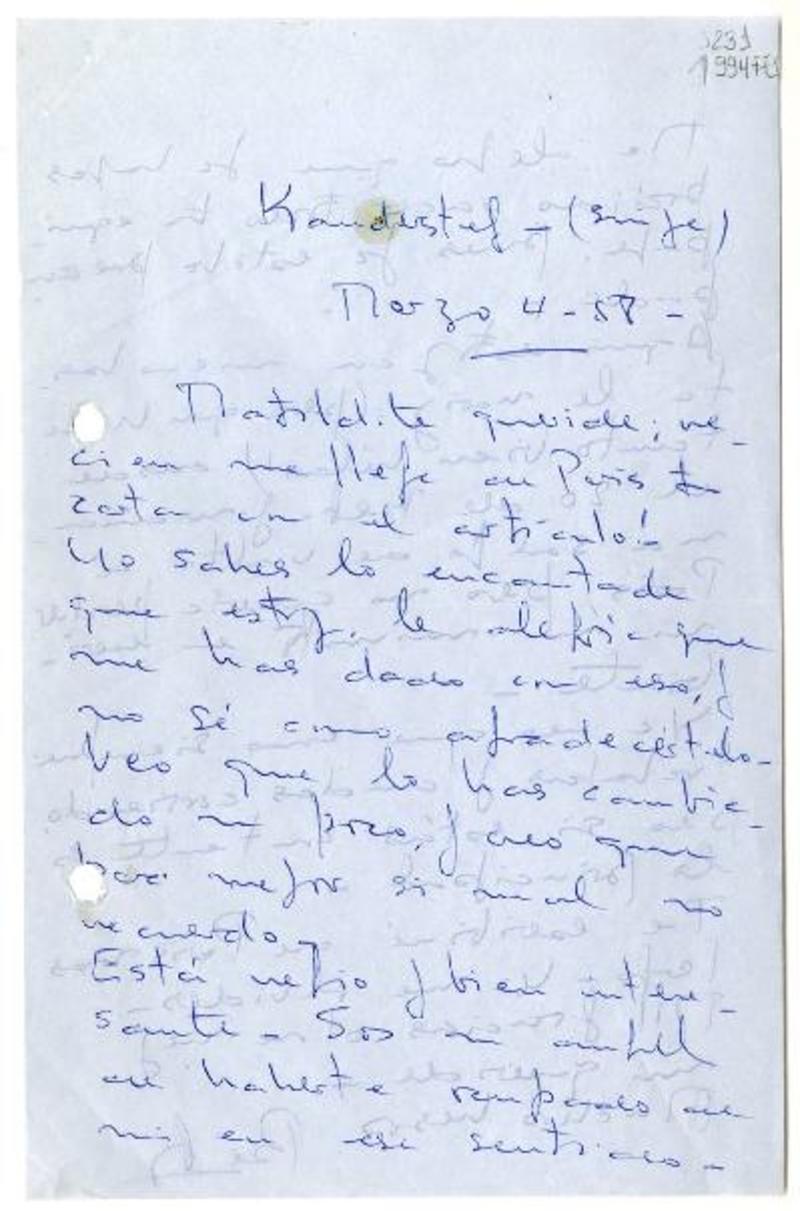 Kandersteg - (Suiza)
Marzo 4 - 58 -
Matildita querida; re-
cién me llega en Paris tu
carta con el artículo!
No sabes lo encantada
que estoy, la alegría que
me has dado con eso, y
no sé como agradecértelo-
Veo que lo has cambia-
do un poco, y creo que
para mejor si mal no
recuerdo -
Está regio y bien intere-
sante - Sos un angel
en haberte ocupado de
mi en ese sentido -